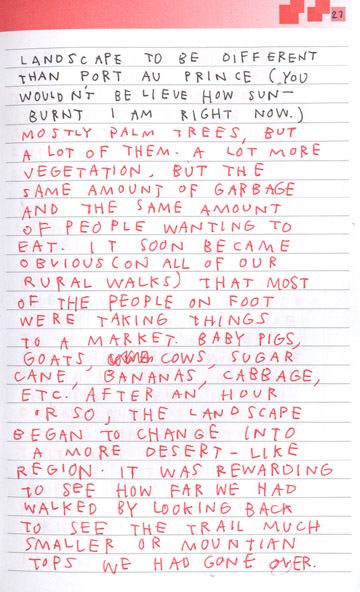 27
LANDSCAPE TO BE DIFFERENT
THAN PORT AU PRINCE (YOU
WOULDN'T BELIEVE HOW SUN-
BURNT I AM RIGHT NOW.)
MOSTLY PALM TREES, BUT
A LOT OF THEM. A LOT MORE
VEGETATION, BUT THE
SAME AMOUNT OF GARBAGE
AND THE SAME AMOUNT
OF PEOPLE WANTING TO
EAT. IT SOON BECAME
OBVIOUS (ON ALL OF OUR
RURAL WALKS) THAT MOST
OF THE PEOPLE ON FOOT
WERE TAKING THINGS
TO A MARKET. BABY PIGS,
GOATS, COWS, SUGAR
CANE, BANANAS, CABBAGE,
ETC. AFTER AN HOUR
OR SO, THE LANDSCAPE
BEGAN TO CHANGE INTO
A MORE DESERT-LIKE
REGION. IT WAS REWARDING
TO SEE HOW FAR WE HAD
WALKED BY LOOKING BACK
TO SEE THE TRAIL MUCH
SMALLER OR MOUNTIAN
TOPS WE HAD GONE OVER.